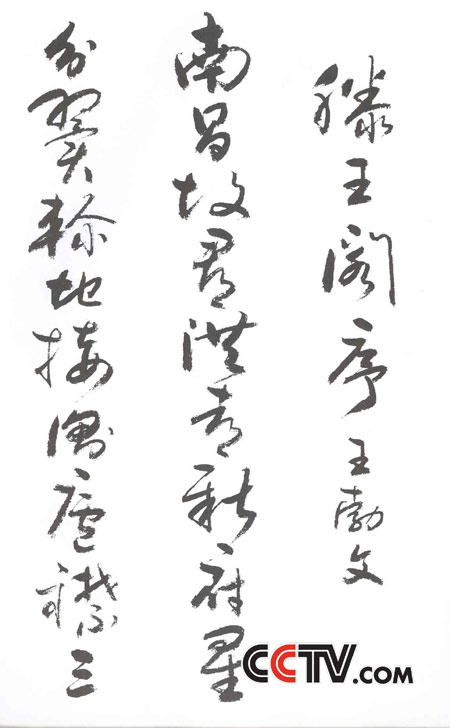 滕王阁序王勃文
南昌故郡洪都新府星
分翼轸地接衡庐襟三
CCTV.com